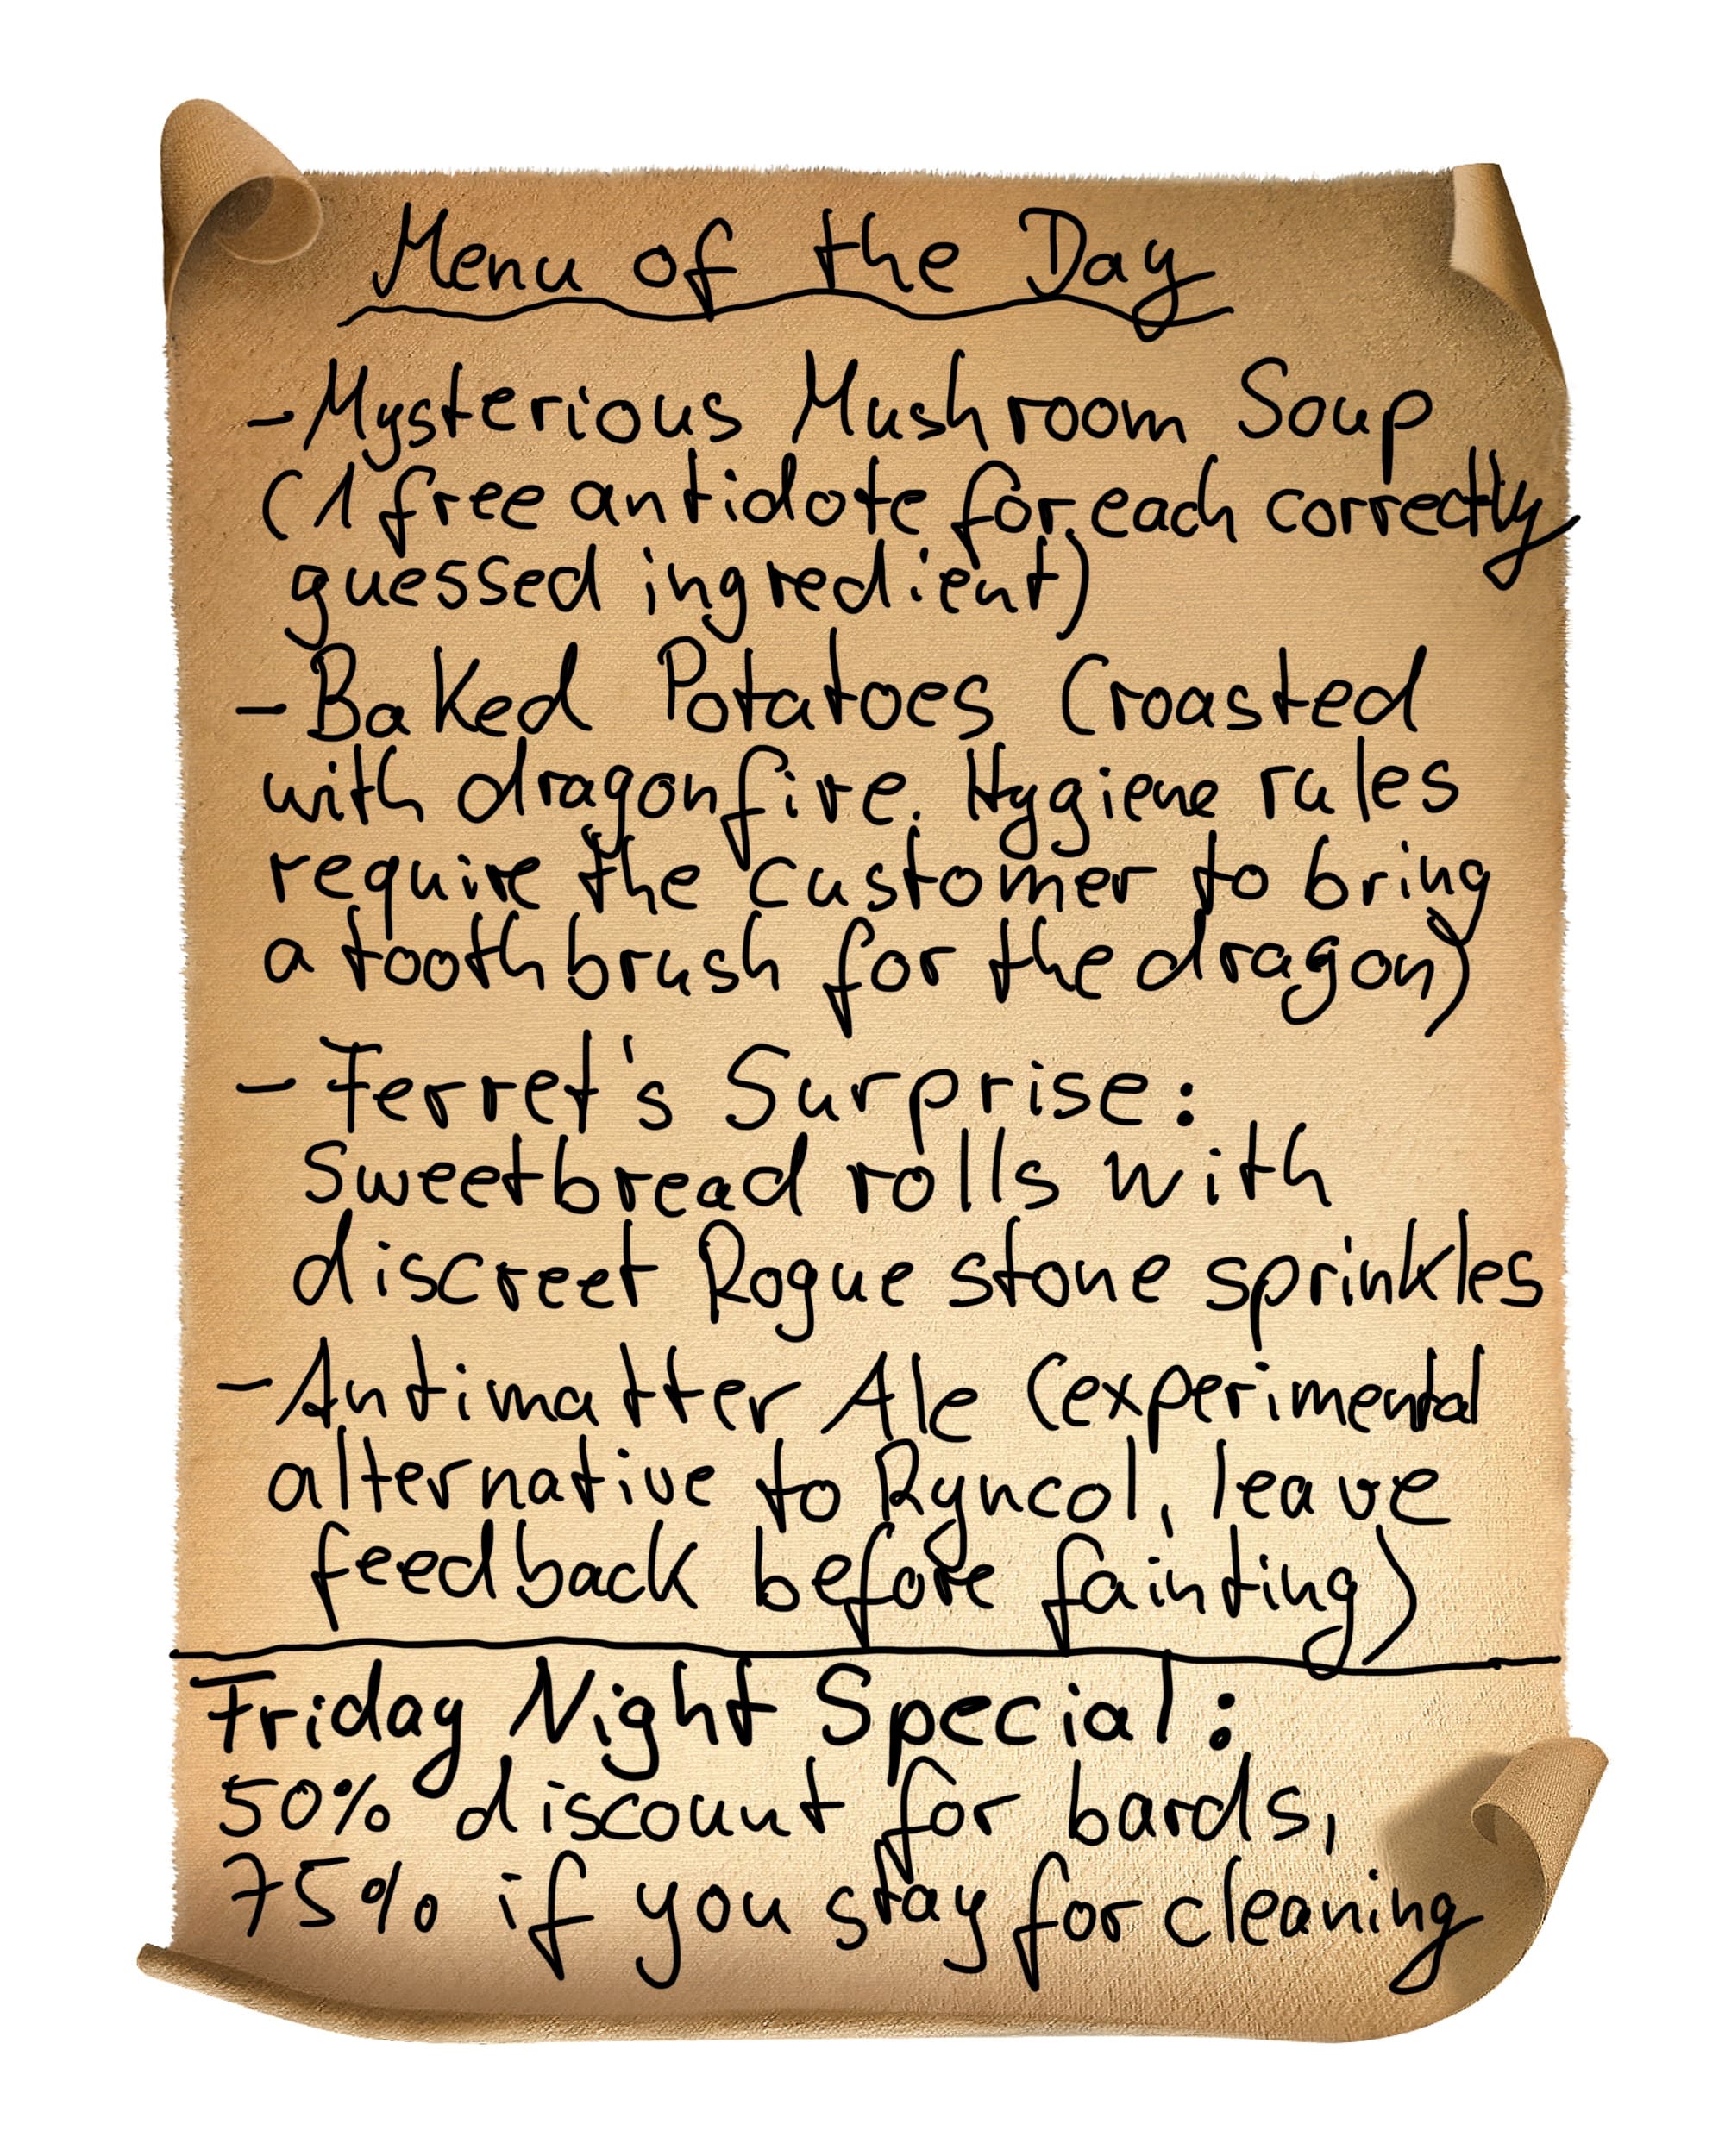 Menu of the Day
- Mysterious Mushroom Soup
(1 free antidote for each correctly
guessed ingredient)
- Baked Potatoes (roasted
with dragonfire. Hygiene rules
require the customer to bring
a toothbrush for the dragon)
- Ferret's Surprise:
Sweetbread rolls with
discreet Rogue stone sprinkles
- Antimatter Ale (experimental
alternative to Ryncol, leave
feedback before fainting)
Friday Night Special:
50% discount for bards,
75% if you stay for cleaning